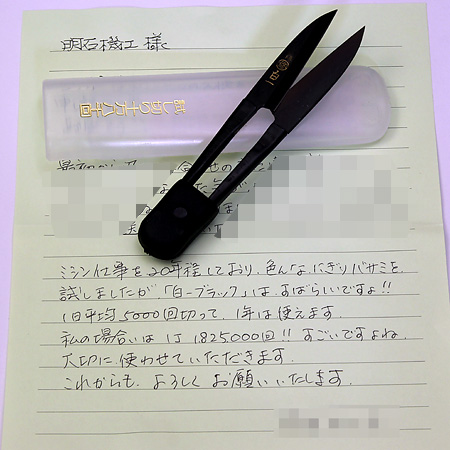 明石機工 様
ミシン仕事を20年程しており、色んなにぎりバサミを
試しましたが、「白一ブラック」は、すばらしいですよ!!
1日平均5000回切って、1年は使えます。
私の場合いは1丁1,825000回!! すごいですよね。
大切に使わせていただきます。
これからも、よろしくお願いいたします。